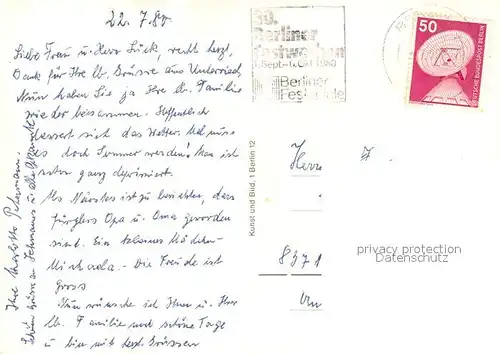 22.7.80
Liebe Frau u. Herr Lück, recht herzl.
Dank für Ihre lb. Grüsse aus Unterried
Nun haben Sie ja Ihre lb. Familie
wieder beisammen. Hoffentlich
bessert sich das Wetter. Mal muss
es doch Sommer werden! Man ist
schon ganz deprimiert.
Als Nächstes ist zu berichten, dass
Opa u. Oma geworden
sind. Ein kleines Mädchen
Michaela - Die Freude ist
gross
Nun wünsche ich Ihnen u. Ihrer
lb. Familie noch schöne Tage
u. bin mit herzl. Grüssen
Ihre Charlotte
Schöne Grüsse an u. alle
30.
Berliner
Festwochen
1. Sept.-1. Okt. 1980
Berliner
Festspiele
50
DEUTSCHE BUNDESPOST BERLIN
Kunst und Bild, 1 Berlin 12
Herrn
8371
privacy protection
Datenschutz